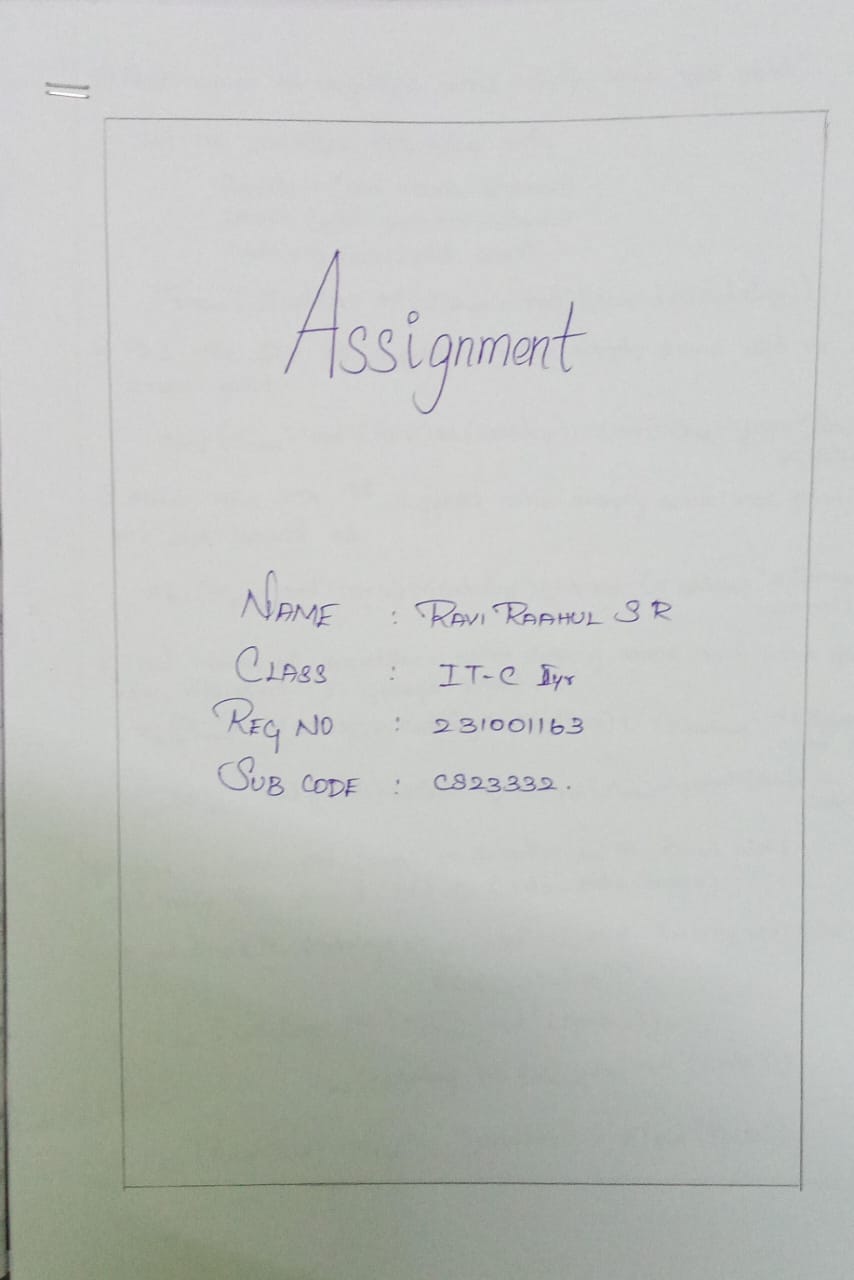 Assignment
NAME : RAVI RAAHUL S R
CLASS : IT-C II yr
REG NO : 231001163
SUB CODE : CS23332.